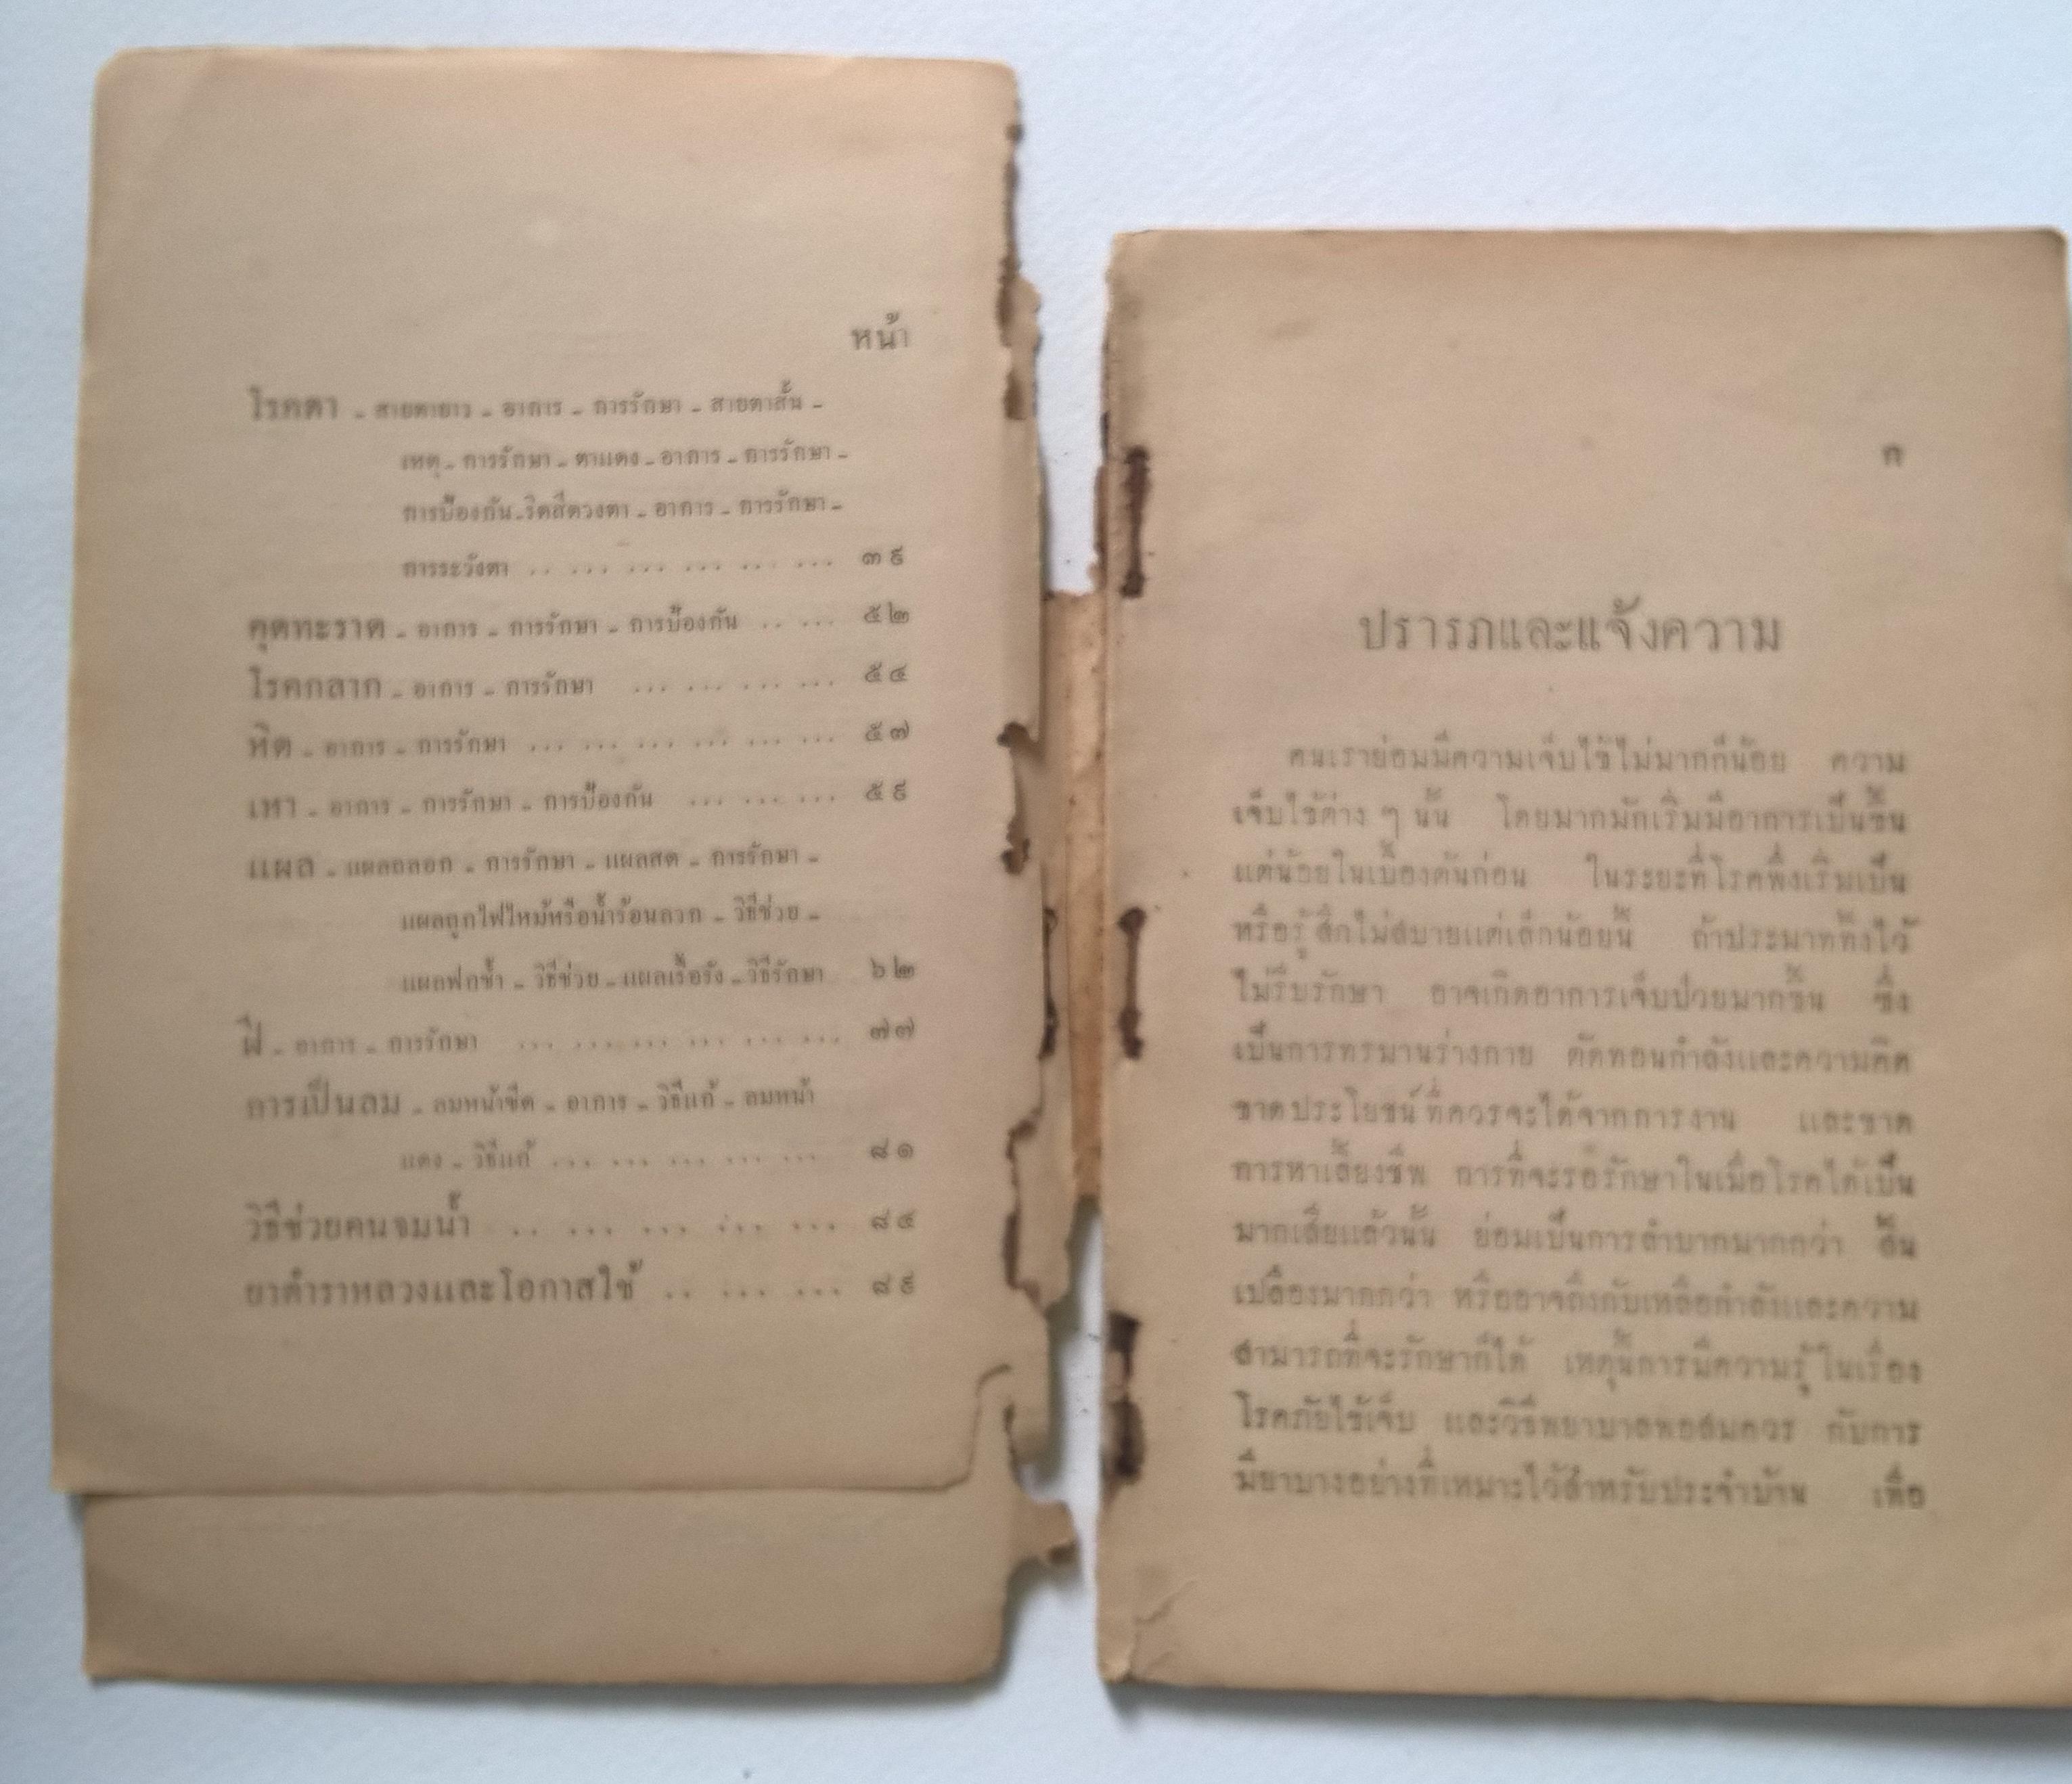 หน้า
โรคตา - สายตายาว - อาการ - การรักษา - สายตาสั้น -
เหตุ - การรักษา - ตาแดง - อาการ - การรักษา -
การป้องกัน - ริดสีดวงตา - อาการ - การรักษา -
การระวังตา .. ... ... ... ... ... ๓๙
คุดทะราด - อาการ - การรักษา - การป้องกัน .. ... ๕๒
โรคกลาก - อาการ - การรักษา ... ... ... ... ๕๔
หิด - อาการ - การรักษา ... ... ... ... ... ... ๕๗
เหา - อาการ - การรักษา - การป้องกัน ... ... ... ๕๙
แผล - แผลถลอก - การรักษา - แผลสด - การรักษา -
แผลถูกไฟไหม้หรือน้ำร้อนลวก - วิธีช่วย -
แผลฟกช้ำ - วิธีช่วย - แผลเรื้อรัง - วิธีรักษา ๖๒
ฝี - อาการ - การรักษา ... ... ... ... ... ... ๗๗
การเป็นลม - ลมหน้าซีด - อาการ - วิธีแก้ - ลมหน้า
แดง - วิธีแก้ ... ... ... ... ... ๘๑
วิธีช่วยคนจมน้ำ .. ... ... ... ... ... ๘๔
ยาตำราหลวงและโอกาสใช้ .. ... ... ๘๙
ก
ปรารภและแจ้งความ
คนเราย่อมมีความเจ็บไข้ไม่มากก็น้อย ความ
เจ็บไข้ต่าง ๆ นั้น โดยมากมักเริ่มมีอาการเป็นขึ้น
แต่น้อยในเบื้องต้นก่อน ในระยะที่โรคพึ่งเริ่มเป็น
หรือรู้สึกไม่สบายแต่เล็กน้อยนี้ ถ้าประมาททิ้งไว้
ไม่รีบรักษา อาจเกิดอาการเจ็บป่วยมากขึ้น ซึ่ง
เป็นการทรมานร่างกาย ตัดทอนกำลังและความคิด
ขาดประโยชน์ที่ควรจะได้จากการงาน และขาด
การหาเลี้ยงชีพ การที่จะรอรักษาในเมื่อโรคได้เป็น
มากเสียแล้วนั้น ย่อมเป็นการลำบากมากกว่า สิ้น
เปลืองมากกว่า หรืออาจถึงกับเหลือกำลังและความ
สามารถที่จะรักษาก็ได้ เหตุนี้การมีความรู้ในเรื่อง
โรคภัยไข้เจ็บ และวิธีพยาบาลพอสมควร กับการ
มียาบางอย่างที่เหมาะไว้สำหรับประจำบ้าน เพื่อ